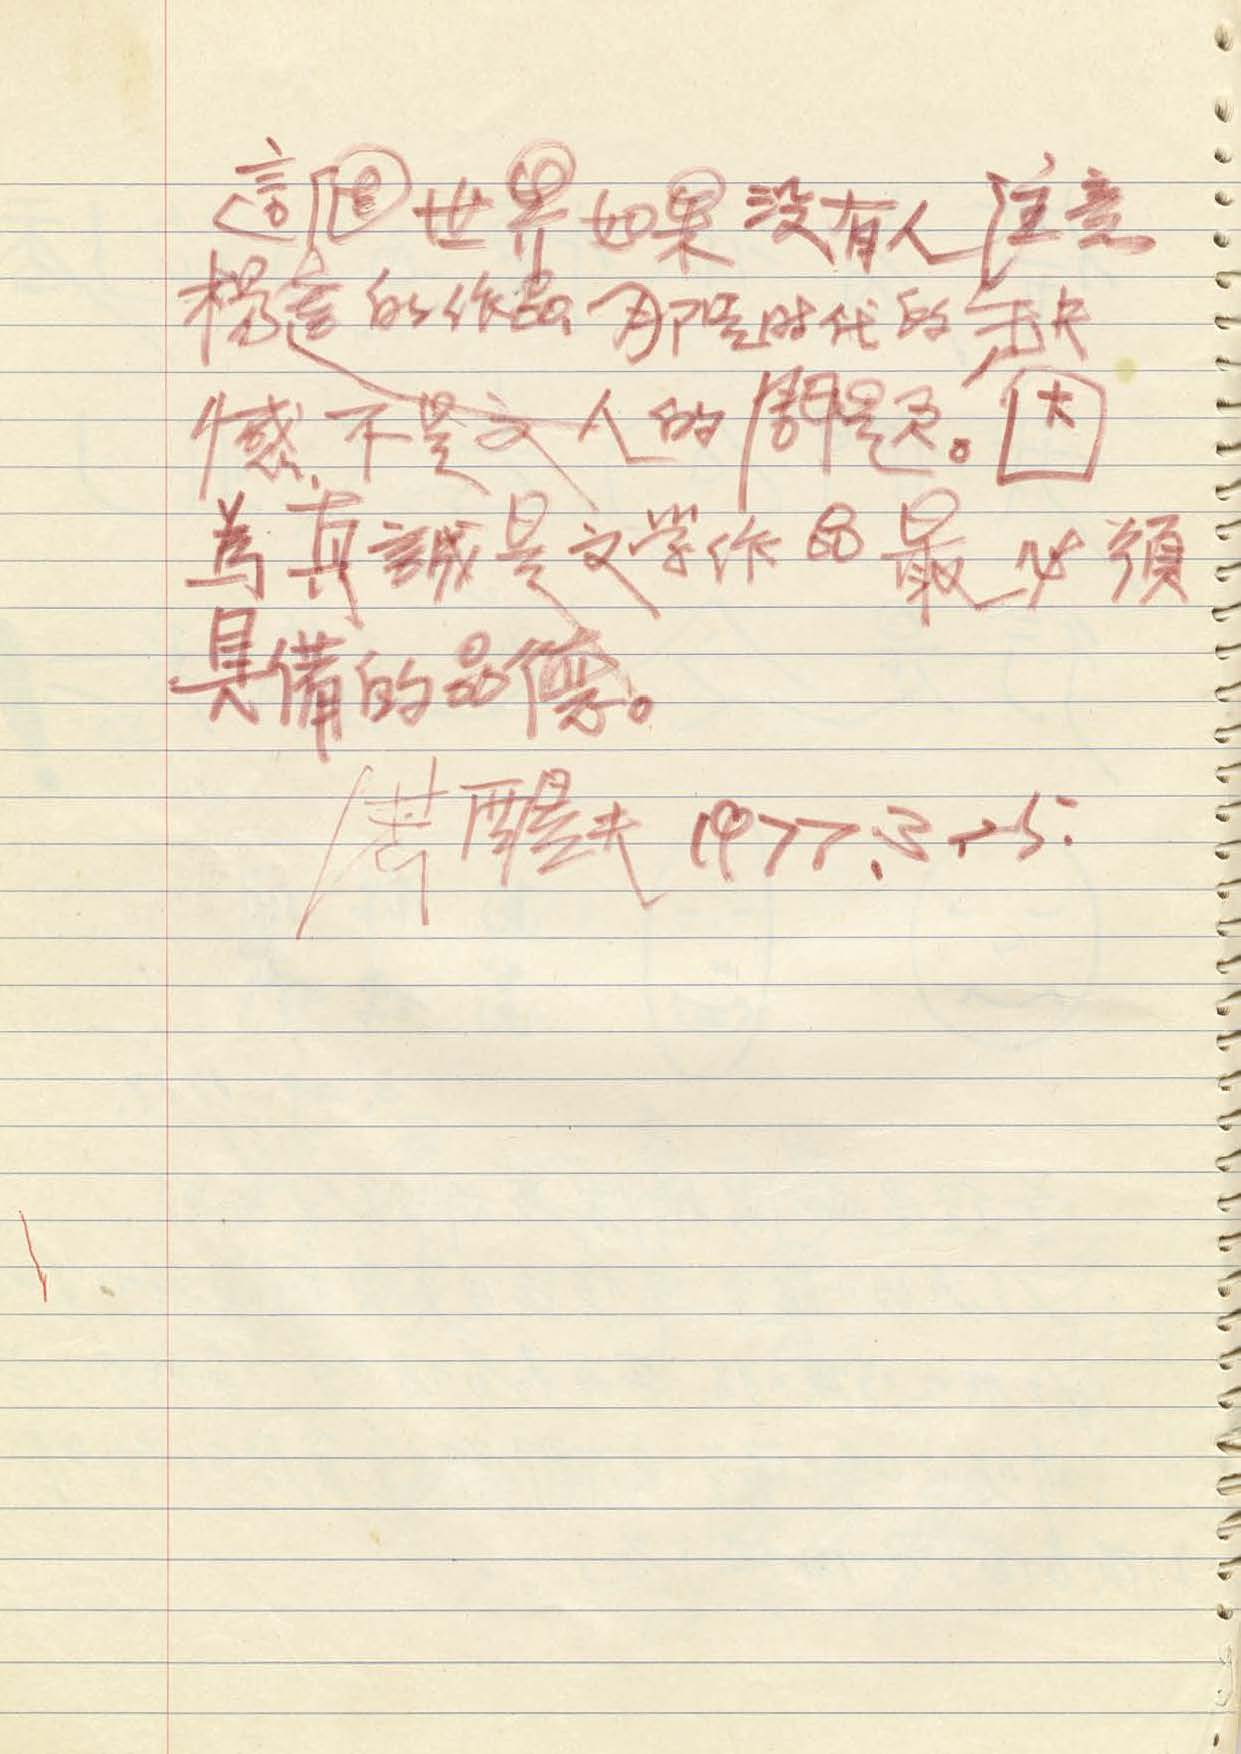 這個世界如果没有人注意
楊逵的作品,那是时代的缺
憾,不是文人的問題。因
為真誠是文学作品最必須
具備的品德。
醒夫 1977.3.25.